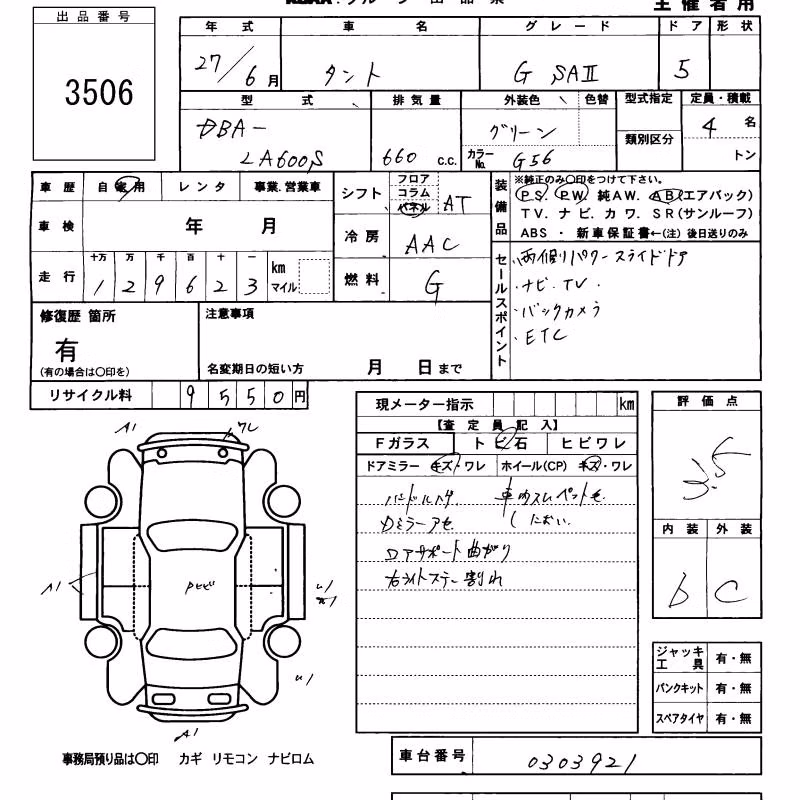 出品番号
3506
主催者用
年式 車名 グレード ドア 形状
27/6月 タント G SAⅡ 5
型式 排気量 外装色 色替 型式指定 定員・積載
DBA-
LA600S 660 c.c. グリーン 類別区分 4名
カラーNo. G56 トン
車歴 自家用 レンタ 事業.営業車
車検 年 月
走行 十万 万 千 百 十 一
1 2 9 6 2 3 km マイル
シフト フロア コラム パネル AT
冷房 AAC
燃料 G
装備品
※純正のみ○印をつけて下さい。
PS. PW. 純AW. AB(エアバック)
TV. ナビ. カワ. SR(サンルーフ)
ABS ・ 新車保証書←(注) 後日送りのみ
セールスポイント
両側パワースライドドア
・ナビ・TV.
・バックカメラ
・ETC
修復歴 箇所
有
(有の場合は○印を)
注意事項
名変期日の短い方 月 日まで
リサイクル料 9 5 5 0 円
現メーター指示 km
【査定員記入】
Fガラス トビ石 ヒビワレ
ドアミラー キズ・ワレ ホイール(CP) キズ・ワレ
ハンドルスレ 車内スレ ペット毛
Dミラーアセ
しにおい.
コアサポート曲がり
右ライトステー割れ
評価点
3.5
内装 外装
b C
ジャッキ工具 有・無
パンクキット 有・無
スペアタイヤ 有・無
A1
A1
A1
事務局預り品は○印 カギ リモコン ナビロム
車台番号 0303921